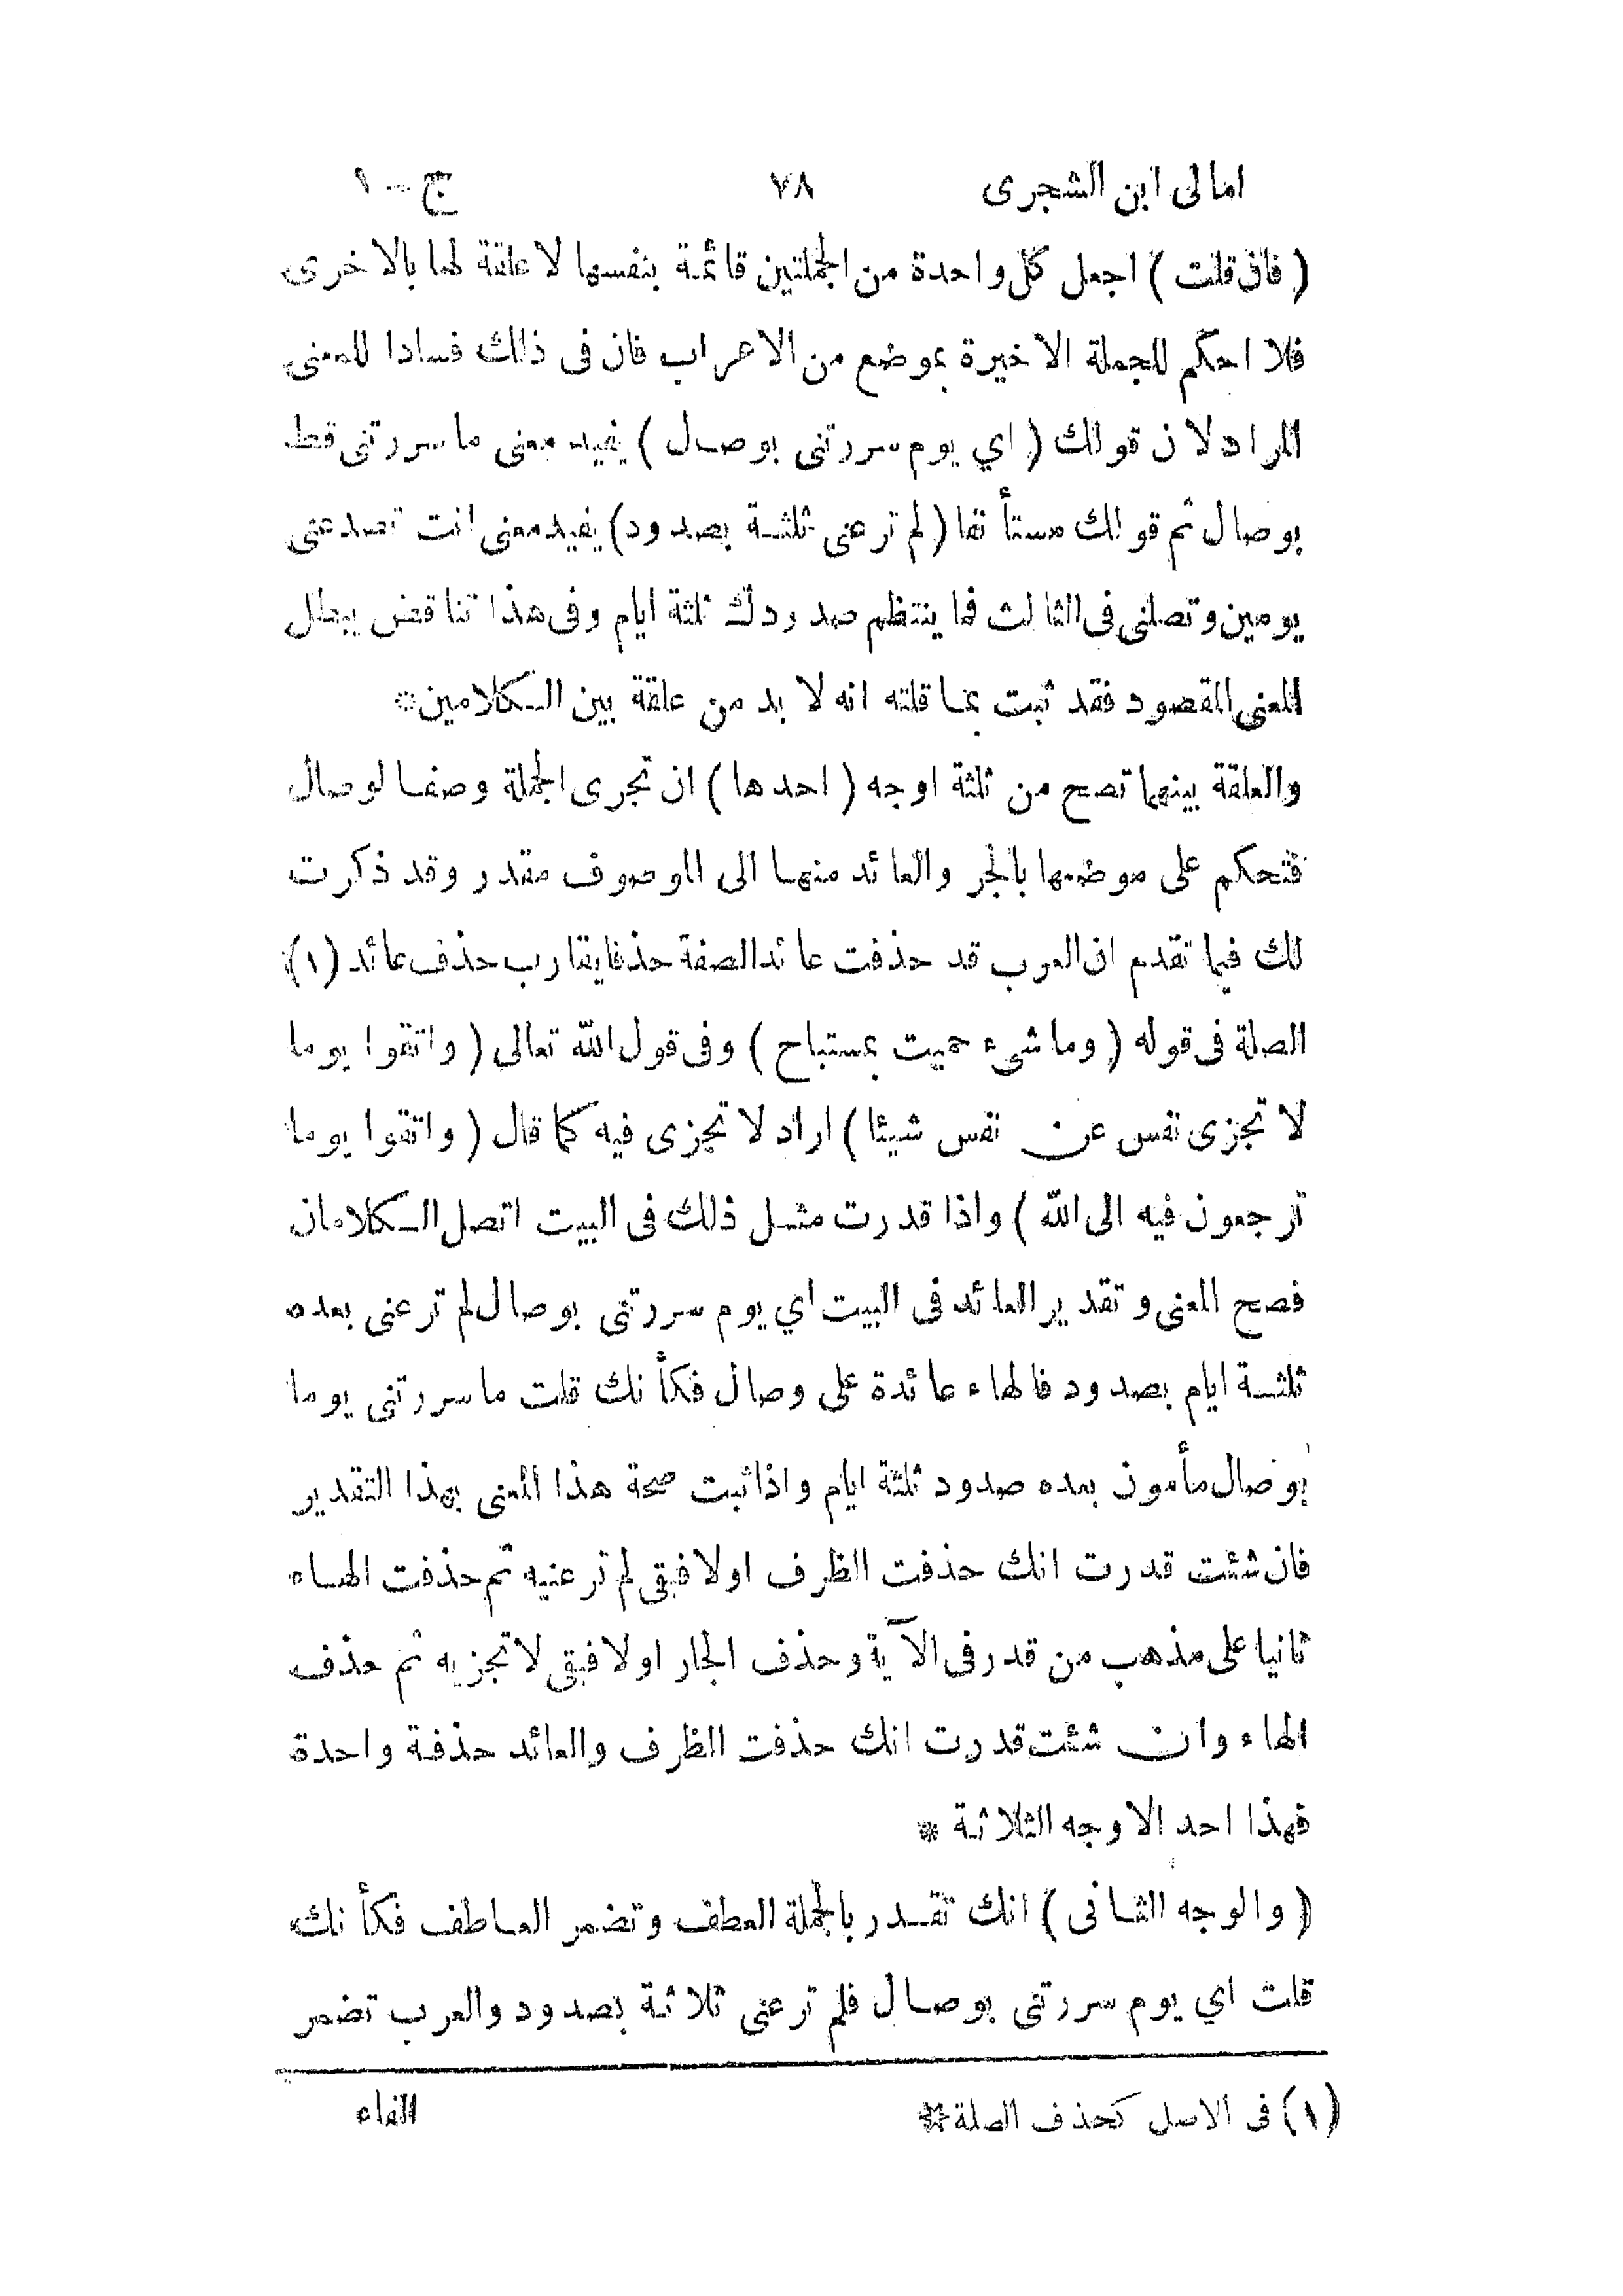 امالى ابن الشجرى ٧٨ ج - ١
( فان قلت ) اجعل كل واحدة من الجملتين قائمة بنفسها لا علقة لها بالاخرى
فلا احكم للجملة الاخيرة بموضع من الاعراب فان فى ذلك فسادا للمعنى
المراد لان قولك ( اي يوم سررتنى بوصال ) يفيد معنى ما سررتنى قط
بوصال ثم قولك مستأنفا ( لم ترعنى ثلثة بصدود ) يفيد معنى انت تصد عنى
يومين وتصلنى فى الثالث فما ينتظم صدودك ثلثة ايام وفى هذا تناقض يبطل
المعنى المقصود فقد ثبت بما قلته انه لا بد من علقة بين الكلامين*
والعلقة بينهما تصح من ثلثة اوجه ( احدها ) ان تجرى الجملة وصفا لوصال
فتحكم على موضعها بالجر والعائد منها الى الموصوف مقدر وقد ذكرت
لك فيما تقدم ان العرب قد حذفت عائد الصفة حذفا يقارب حذف عائد (١)
الصلة فى قوله ( وما شىء حميت بمستباح ) وفى قول الله تعالى ( واتقوا يوما
لا تجزى نفس عن نفس شيئا ) اراد لا تجزى فيه كما قال ( واتقوا يوما
ترجعون فيه الى الله ) واذا قدرت مثل ذلك فى البيت اتصل الكلامان
فصح المعنى وتقدير العائد فى البيت اي يوم سررتنى بوصال لم ترعنى بعده
ثلثة ايام بصدود فالهاء عائدة على وصال فكأنك قلت ما سررتنى يوما
بوصال مأمون بعده صدود ثلثة ايام واذا ثبت صحة هذا المعنى بهذا التقدير
فان شئت قدرت انك حذفت الظرف اولا فبقى لم ترعنيه ثم حذفت الهاء
ثانيا على مذهب من قدر فى الآية وحذف الجار اولا فبقى لا تجزيه ثم حذف
الهاء وان شئت قدرت انك حذفت الظرف والعائد حذفة واحدة
فهذا احد الاوجه الثلاثة *
( والوجه الثانى ) انك تقدر بالجملة العطف وتضمر العاطف فكأنك
قلت اي يوم سررتنى بوصال فلم ترعنى ثلاثة بصدود والعرب تضمر
(١) فى الاصل كحذف الصلة* الفاء